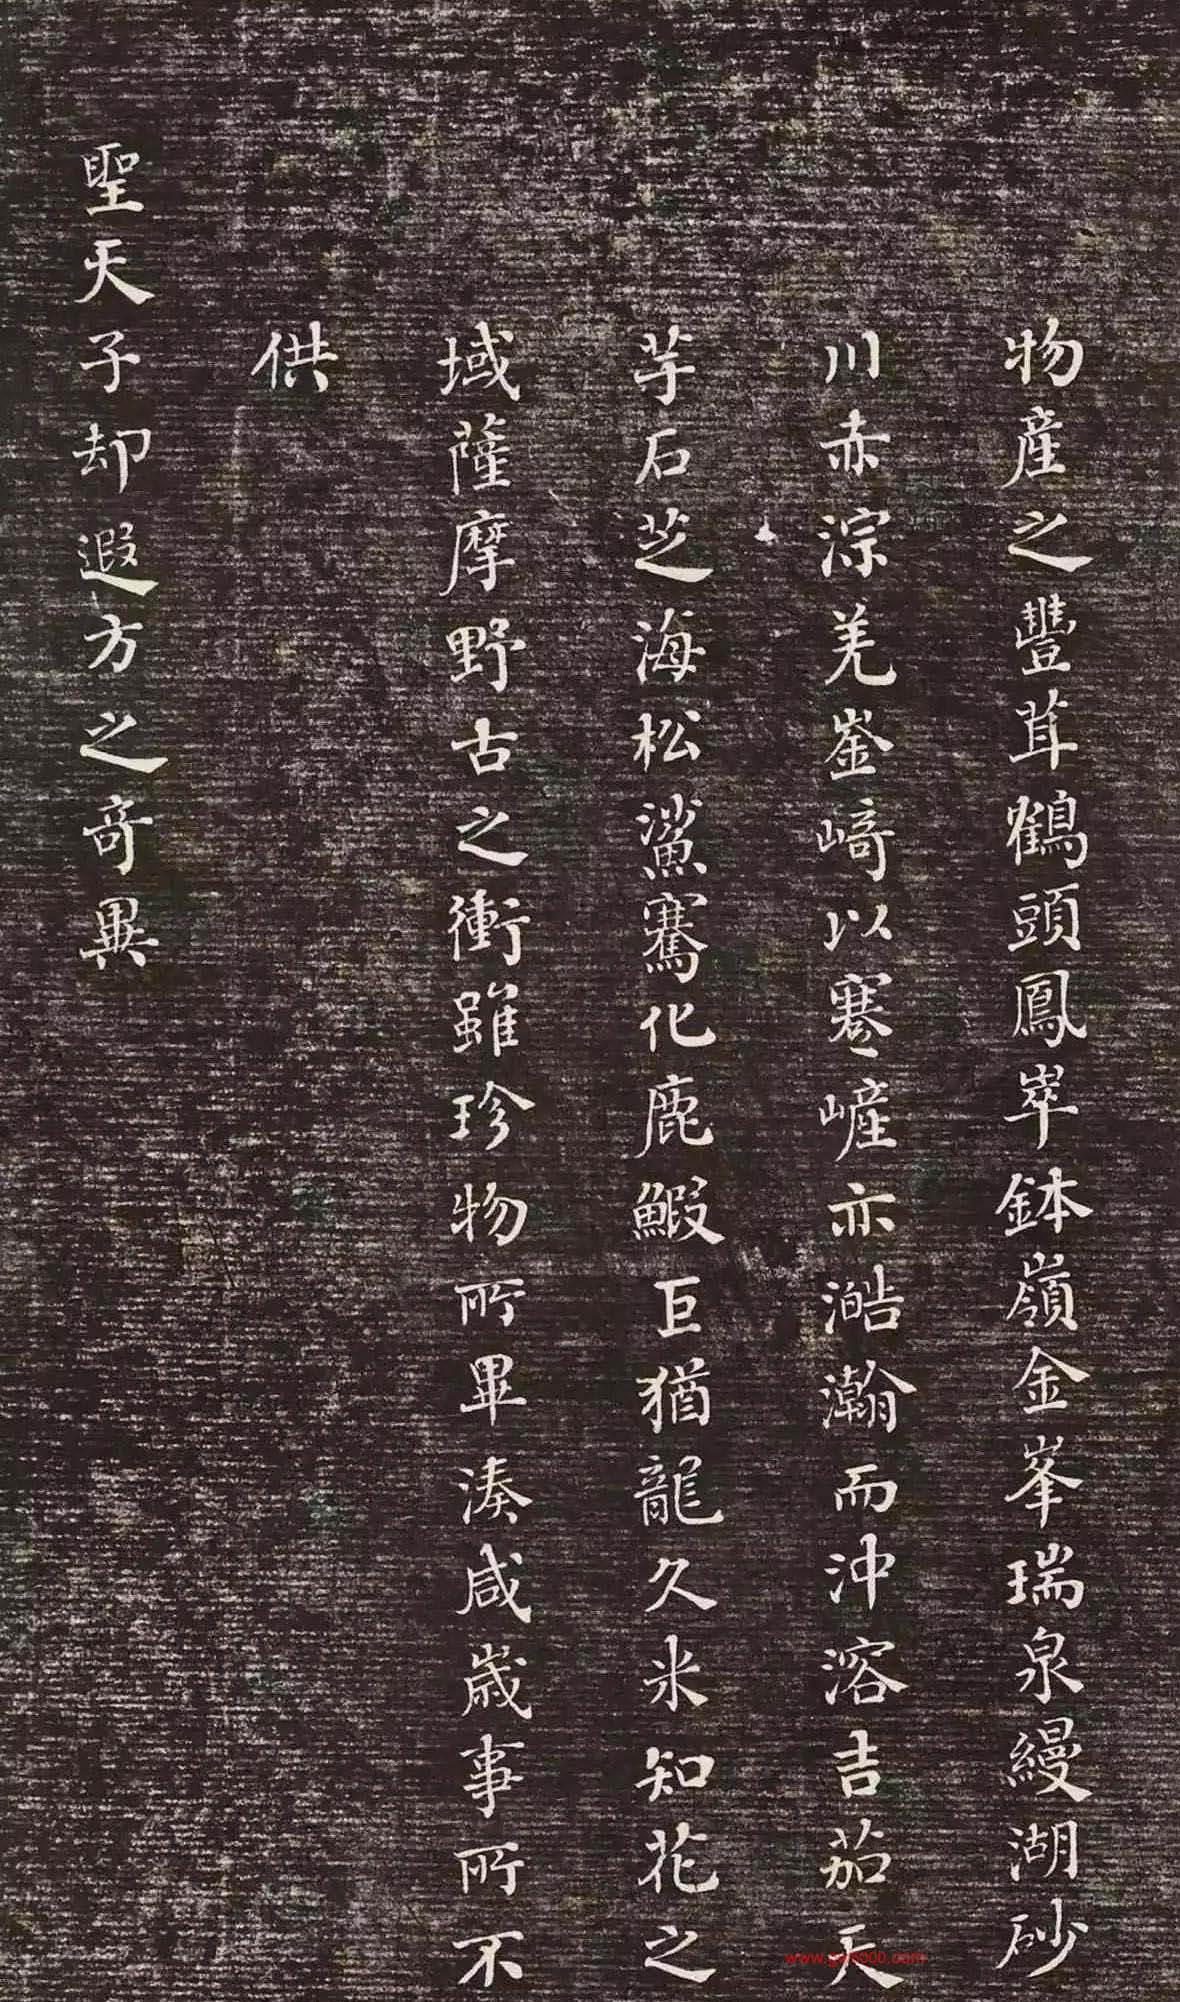 物産之豐茸鶴頭鳳崒鉢嶺金峯瑞泉縵湖砂
川赤淙羌崟﨑以蹇嵼亦澔瀚而沖溶吉茄天
芋石芝海松鯊騫化鹿鰕巨猶龍久米知花之
域薩摩野古之衝雖珍物所畢湊咸歲事所不
供
聖天子却遐方之奇異
www.gw8000.com